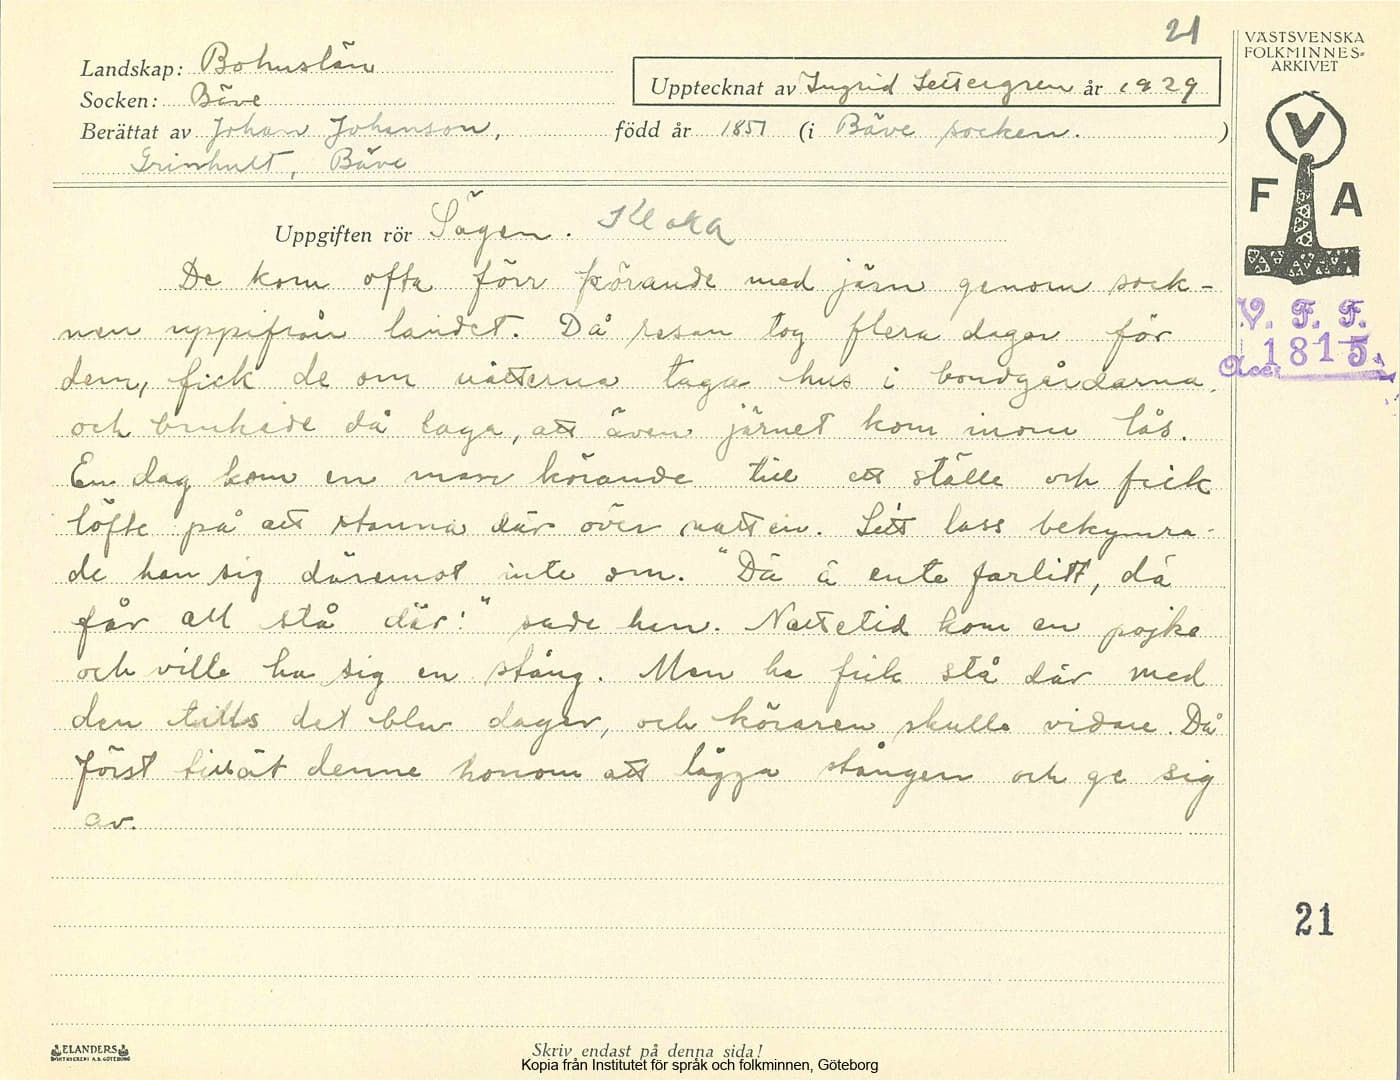 21
Landskap: Bohuslän
Socken: Bäve
Upptecknat av Ingrid Settergren år 1929
Berättat av Johan Johanson, född år 1851 (i Bäve socken. )
Grinhult, Bäve
Uppgiften rör Sägen. Kloka
De kom ofta förr körande med järn genom sock-
nen uppifrån landet. Då resan tog flera dagar för
dem, fick de om nätterna taga hus i bondgårdarna,
och brukade då laga, att även järnet kom inom lås.
En dag kom en man körande till ett ställe och fick
löfte på att stanna där över natten. Sitt lass bekymra-
de han sig däremot inte om. "Dä ä ente farlitt, dä
får all stå där!" sade han. Nattetid kom en pojke
och ville ha sig en stång. Men ha fick stå där med
den tills det blev dager, och köraren skulle vidare. Då
först tillät denne honom att lägga stången och ge sig
av.
VÄSTSVENSKA
FOLKMINNES-
ARKIVET
V
F A
V. F. F.
Acc: 1815.
21
ELANDERS
BOKTRYCKERI A.B. GÖTEBORG
Skriv endast på denna sida!
Kopia från Institutet för språk och folkminnen, Göteborg